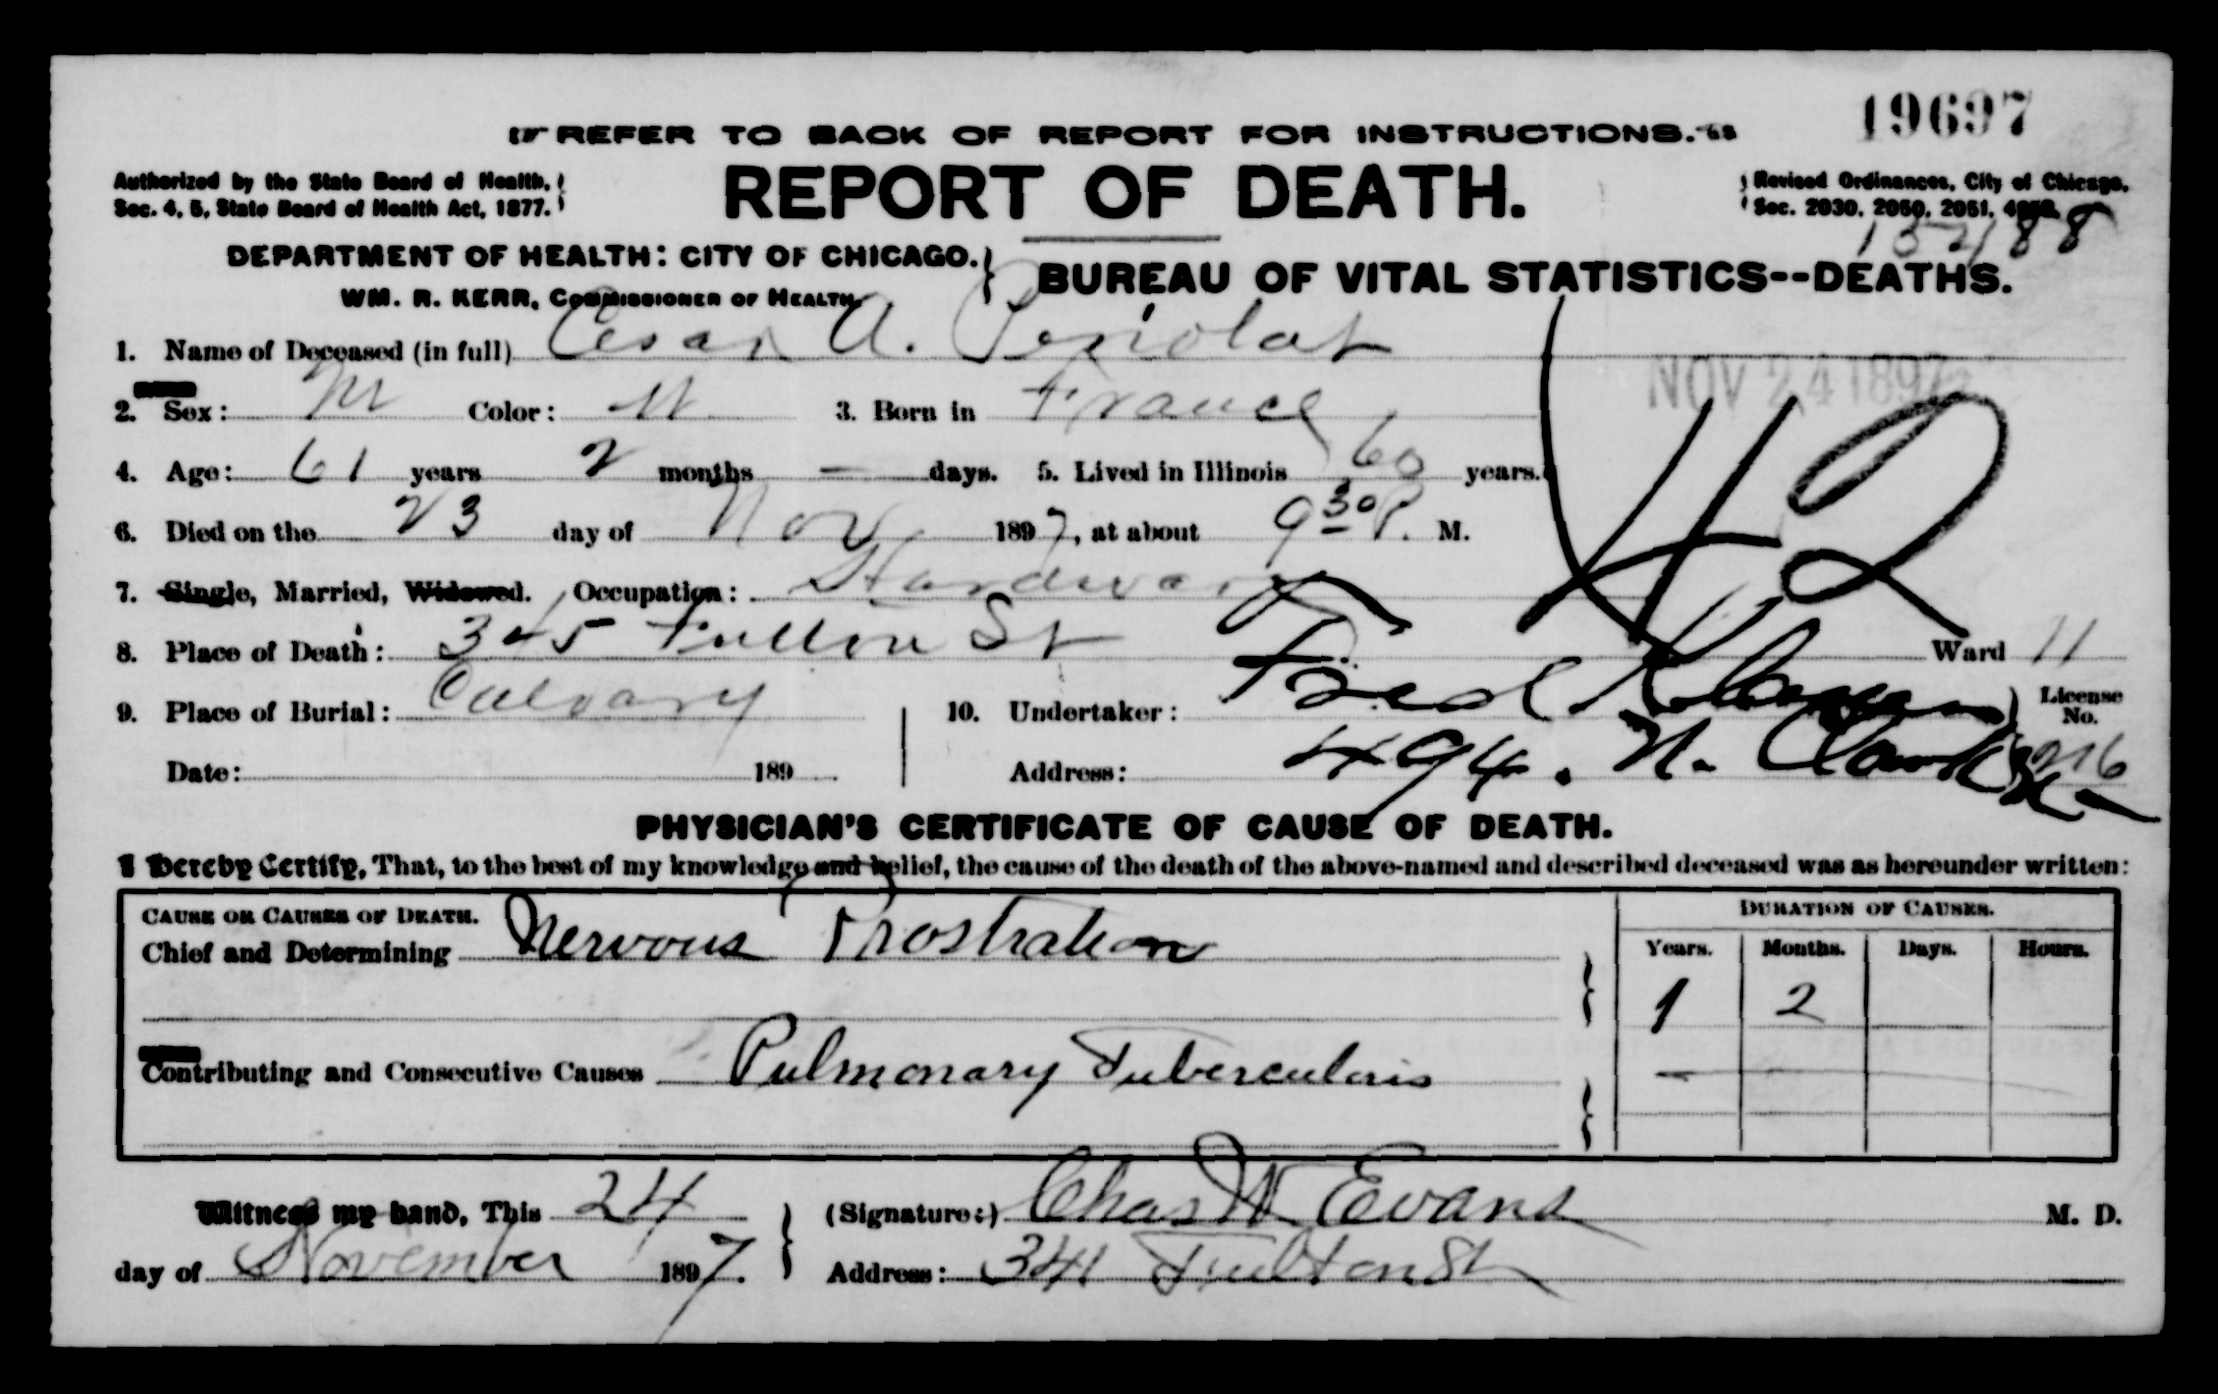 19697
☞ REFER TO BACK OF REPORT FOR INSTRUCTIONS.
Authorized by the State Board of Health,
Sec. 4, 5, State Board of Health Act, 1877.
REPORT OF DEATH.
Revised Ordinances, City of Chicago,
Sec. 2030, 2050, 2051,
DEPARTMENT OF HEALTH: CITY OF CHICAGO.
WM. R. KERR, COMMISSIONER OF HEALTH.
BUREAU OF VITAL STATISTICS--DEATHS.
1. Name of Deceased (in full) Cesar A. Periolat
NOV 24 1897
2. Sex: M Color: W 3. Born in France
4. Age: 61 years 2 months — days. 5. Lived in Illinois 60 years.
42
6. Died on the 23 day of Nov 1897, at about 9 30 P. M.
7. Single, Married, Widowed. Occupation: Hardware
8. Place of Death: 345 Fulton St Ward 11
9. Place of Burial: Calvary 10. Undertaker: Fred License No.
Date: 189 Address: 494. N. Clark St
PHYSICIAN'S CERTIFICATE OF CAUSE OF DEATH.
I hereby Certify, That, to the best of my knowledge and belief, the cause of the death of the above-named and described deceased was as hereunder written:
CAUSE OR CAUSES OF DEATH. DURATION OF CAUSES.
Chief and Determining Nervous Prostration
Years. Months. Days. Hours.
1 2
Contributing and Consecutive Causes Pulmonary Tuberculosis
Witness my hand, This 24 (Signature:) Chas W Evans M. D.
day of November 1897. Address: 341 Fulton St